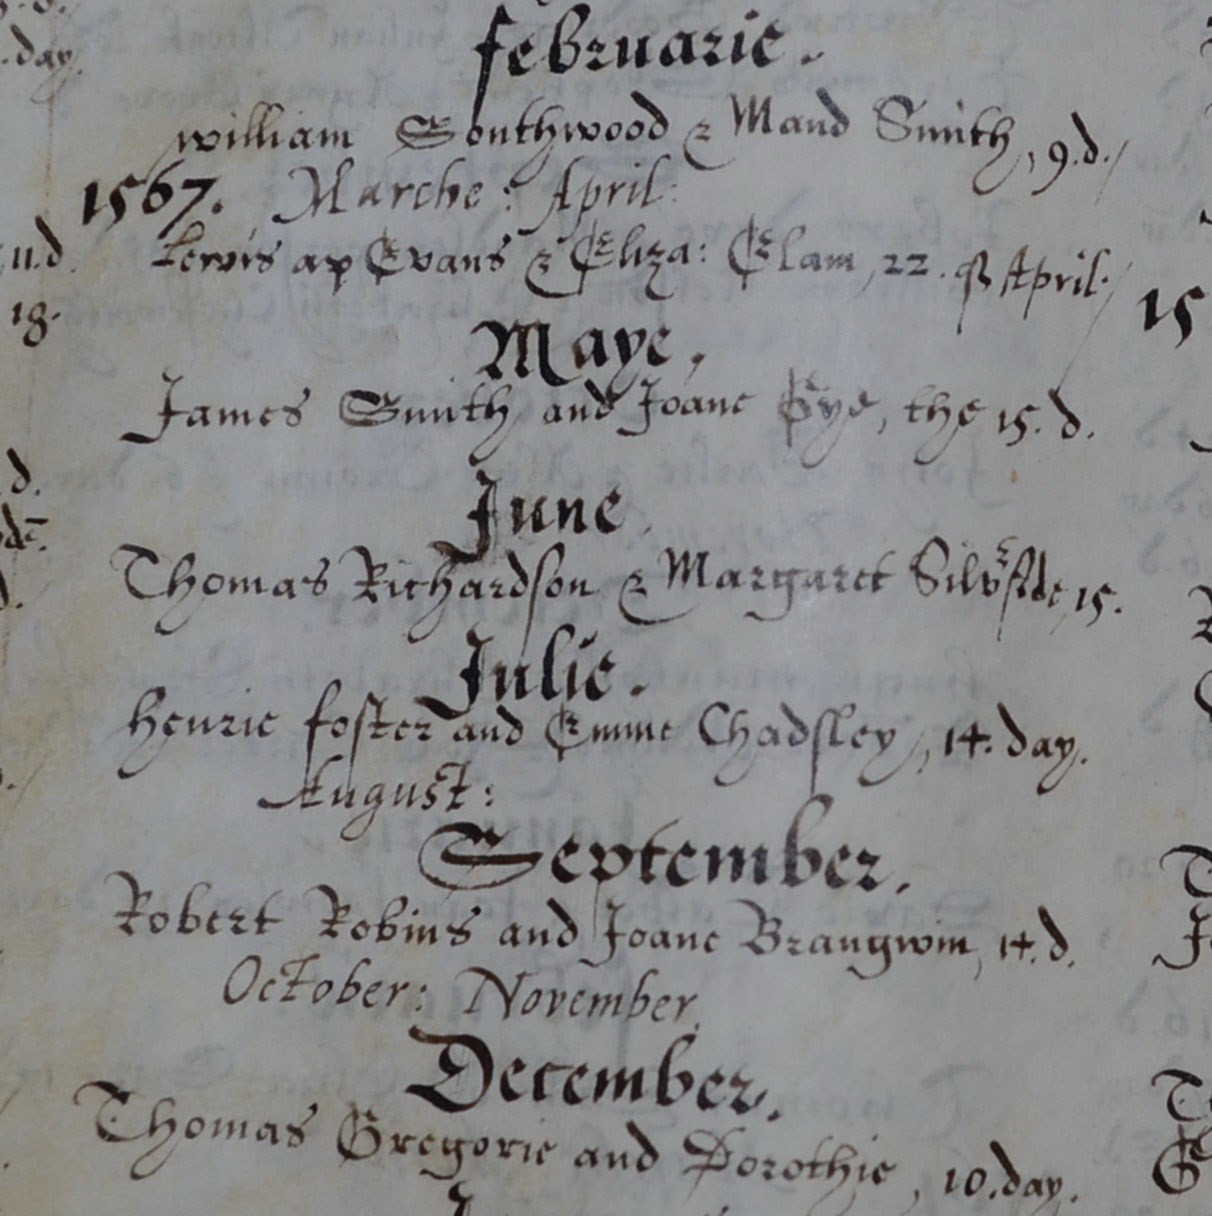 februarie.
william Southwood & Maud Smith, 9.d.
1567. Marche: April:
Lewis ap Evans & Eliza: Elam, 22. April.
Maye.
James Smith and Joane Pye, the 15. d.
June.
Thomas Richardson & Margaret 15.
Julie.
Henrie foster and Emme Chadsley, 14. day.
August:
September.
Robert Robins and Joane Brangwin, 14. d.
October: November
December.
Thomas Gregorie and Dorothie, 10. day.